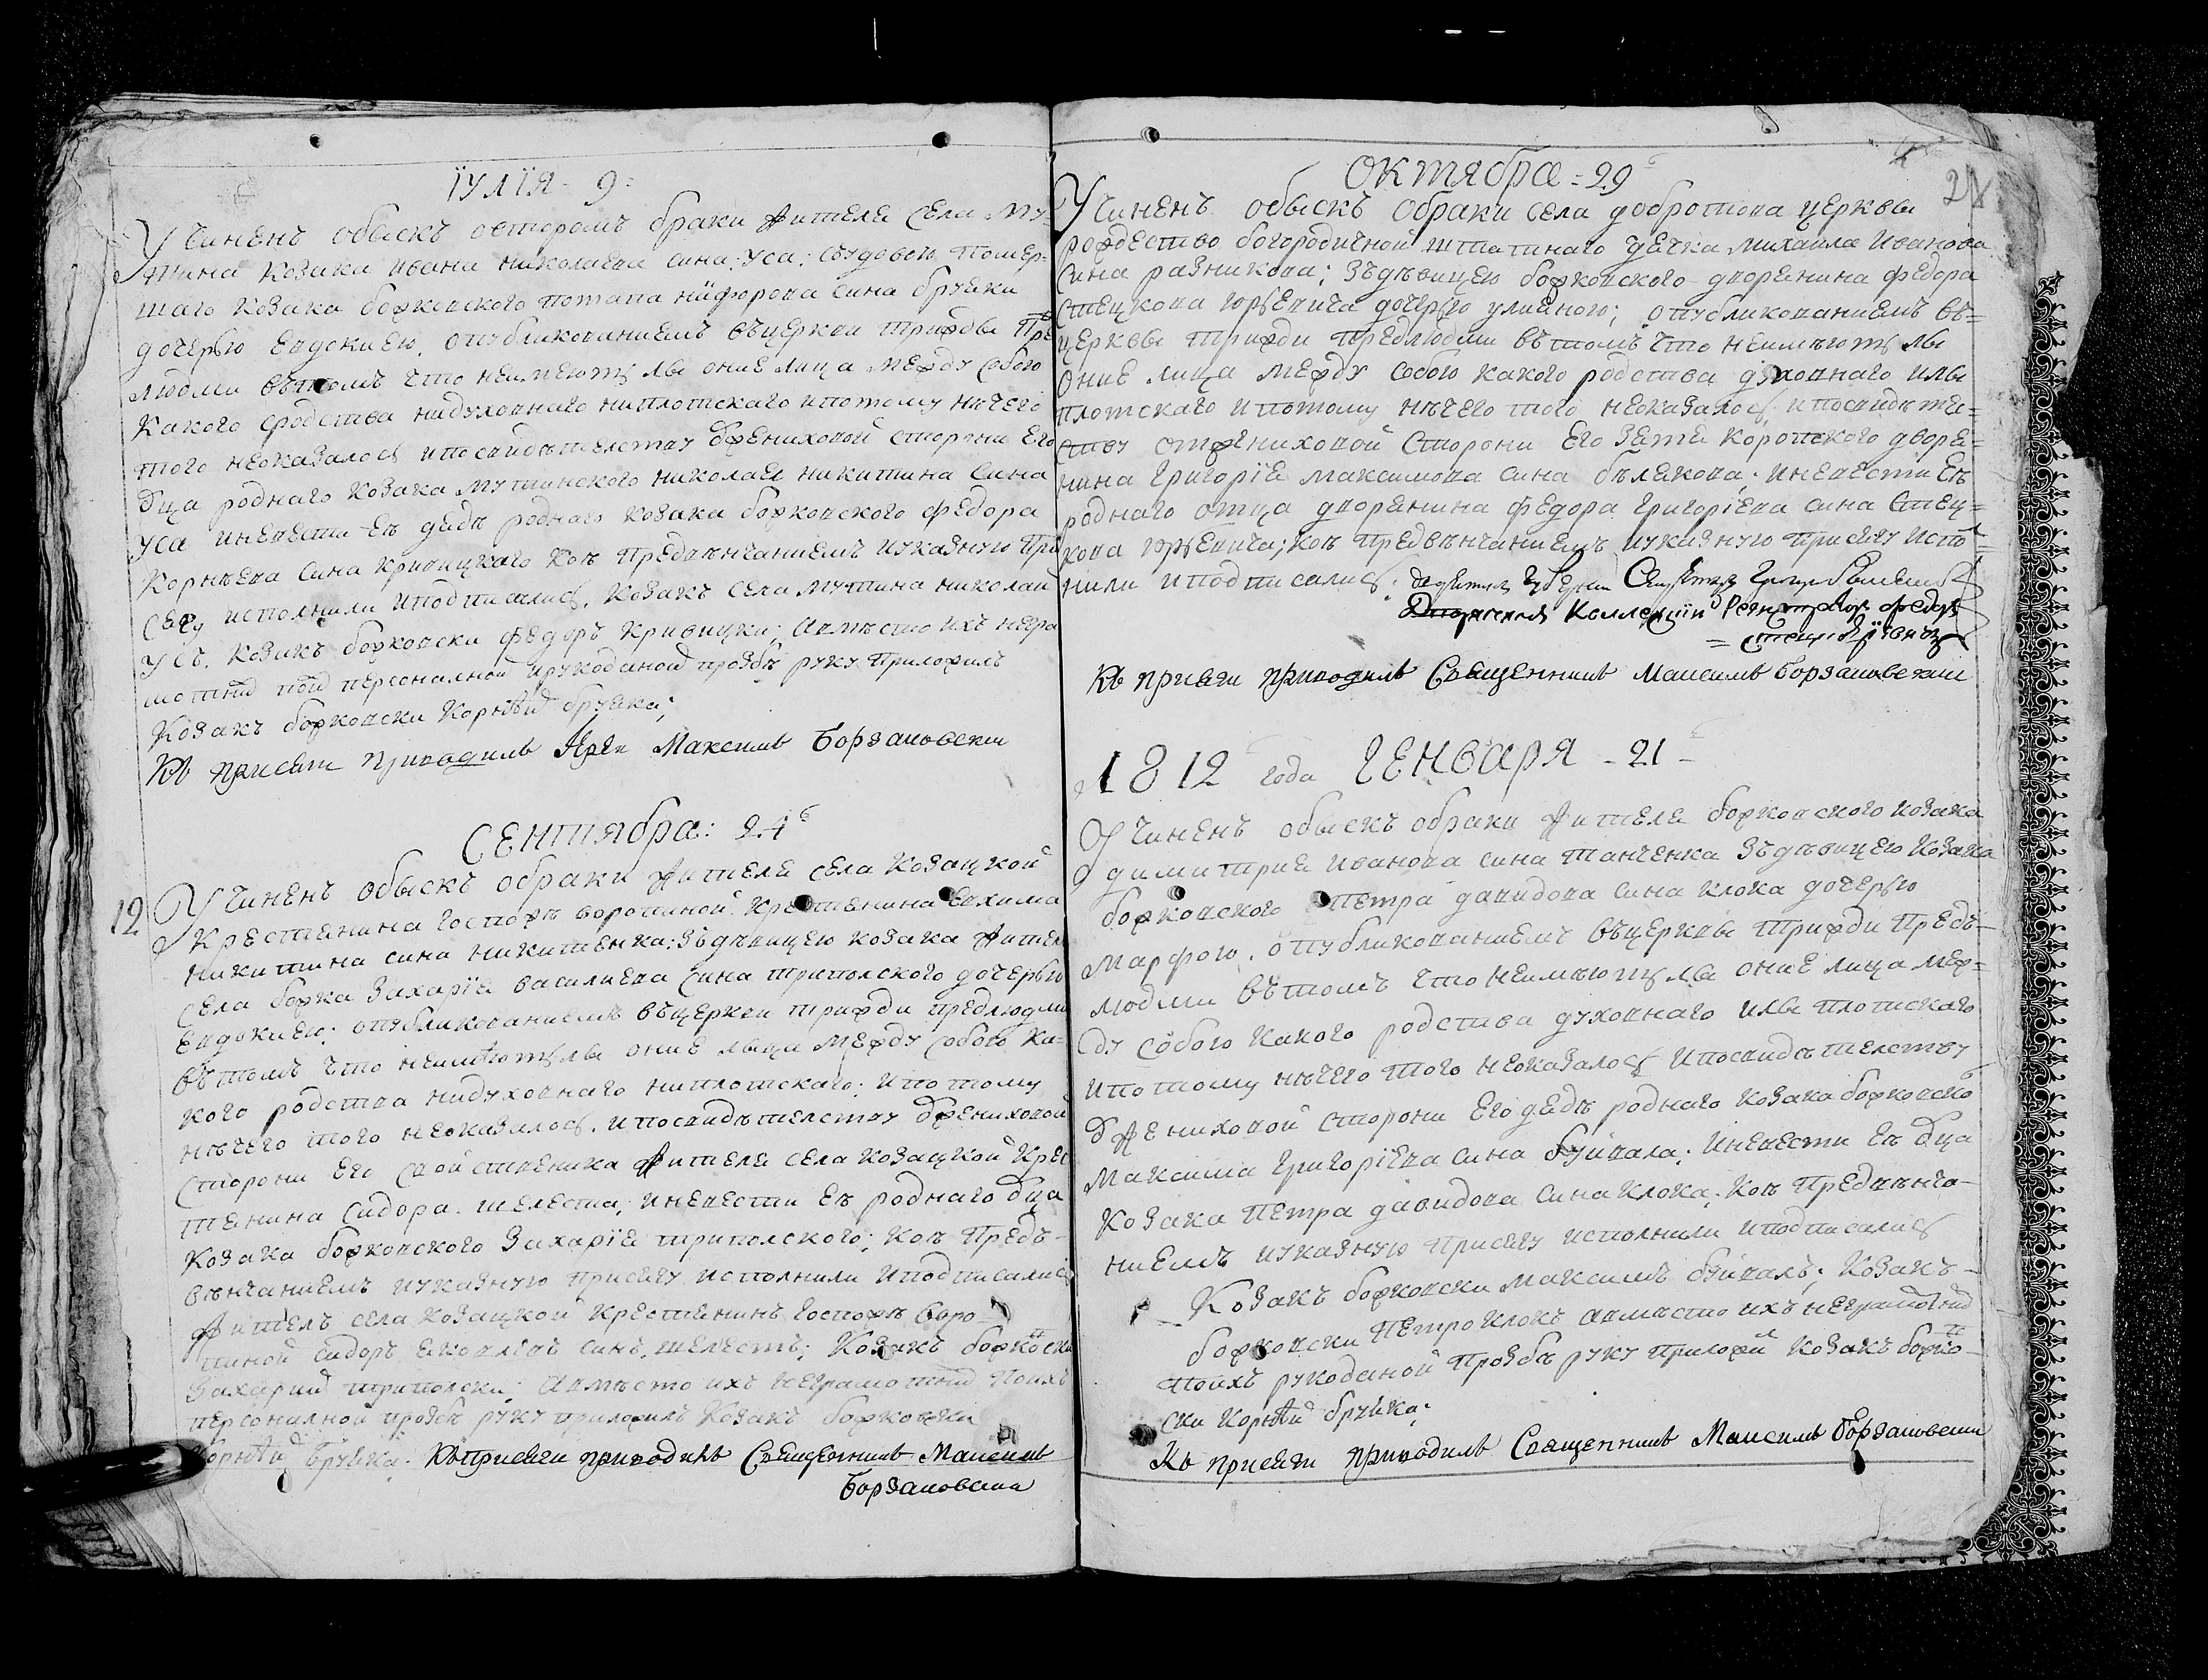 ІУЛІЯ - 9:
Учиненъ обыскъ овторомъ браки жителя села Му-
тина козака ивана николаева сина: Уса: сѣудовою помер-
шаго козака божковского потапа нифорова сина бруяки
дочерью евдокиею, опубликованиемъ въцеркви трижды пре
людми вътомъ что неимеютъ лы оние лица между собою
какого сродства нидуховнаго ниплотскаго ипотому нѣчего
того неоказалось ипосвидѣтелству ѿжениховой сторони его
ѿца роднаго козака мутинского николая никитина сина
уса иневести еѣ дядѣ роднаго козака божковского федора
корнѣева сина кривицкаго кои предвѣнчаниемъ иуказную при
сягу исполнили иподписались. козакъ села мутина николай
усъ. козакъ божковски федоръ кривицки; авмѣсто ихъ негра
мотній поїд персоналной ирукоданой прозбѣ руку приложилъ
козакъ божковски корнѣй бруяка;
Къ присяги приводилъ Іерей Максимъ Борзановски
СЕНТЯбРя: 24 г
12
Учиненъ обыскъ обраки жителя села козацкой
крестянина госпожѣ воропиной. крестянина евхима
никитина сина никитенка; зъдѣвицею козака жителя
села божка захарія василиева сина триполского дочерью
евдокиею; опубликованиемъ въцеркви трижди предлюдми
вътомъ что неимѣютъ лы оние лыца между собою ка-
кого родства нидуховнаго ниплотскаго; ипотому
нѣчего того неоказалось. ипосвидѣтелству ѿжениховой
сторони его свойственика жителя села козацкой крес
тянина сидора. шелеста; иневести еѣ роднаго ѿца
козака божковского захарія триполского; кои предъ-
вѣнчаниемъ иуказную присягу исполнили иподписались
жителъ села козацкой крестянинъ госпожѣ воро-
пиной сидоръ яковлівъ синъ, шелестъ; козакъ божковски
захарий триполски; авмѣсто ихъ неграмотній поихъ
персоналной прозбѣ руку приложилъ козакъ божковски
корнѣй бруяка. Къ присяги приводилъ Священникъ Максимъ
Борзановски
ОКТЯбРя = 29 г
Учиненъ обыскъ обраки села добротова церквы
рождество богородичной штатнаго дячка михаила иванова
сина разникова; зъдѣвицею божковского дворянина федора
стецкова юрьевича дочерью улияною; опубликованиемъ въ=
церквы трижди предлюдми вътомъ что неимѣютъ лы
оние лица между собою какого родства духовнаго илы
плотскаго ипотому нѣчего того неоказалось; ипосвидѣте=
лству отжениховой сторони его зятя коропского дворя=
нина григорія максимова сина бѣлякова; иневести еѣ
роднаго отца дворянина федора григоріева сина стец=
кова юрьевича; кои предвѣнчаниемъ иуказную присягу испо=
нили иподписались:
Коллекціи Регистраторъ Федоръ
Къ присяги приводилъ Священникъ Максимъ Борзановски
1812 года ГЕНВАРЯ - 21 -
Учиненъ обыскъ обраки жителя божковского козака
димитрия иванова сина танченка зъдѣвицею козака
божковского петра давидова сина клока дочерью
марфою. опубликованиемъ въцерквы трижди предъ-
людми вътомъ что неимѣютъ лы оние лица меж=
ду собою какого родства духовнаго илы плотскаго
ипотому нѣчего того неоказалось ипосвидѣтелству
ѿжениховой сторони его дядѣ роднаго козака божковско
максима григоріева сина буйвала; иневести еѣ ѿца
козака петра давидова сина клока; кои предвѣнча-
ниемъ иуказную присягу исполнили иподписались
козакъ божковски максимъ буйвалъ; козакъ-
божковски петро клокъ авмѣсто ихъ неграмотній
поихъ рукоданой прозбѣ руку приложи козакъ божко-
ски корнѣй бруяка;
Къ присяги приводилъ Священникъ Максимъ Борзановски